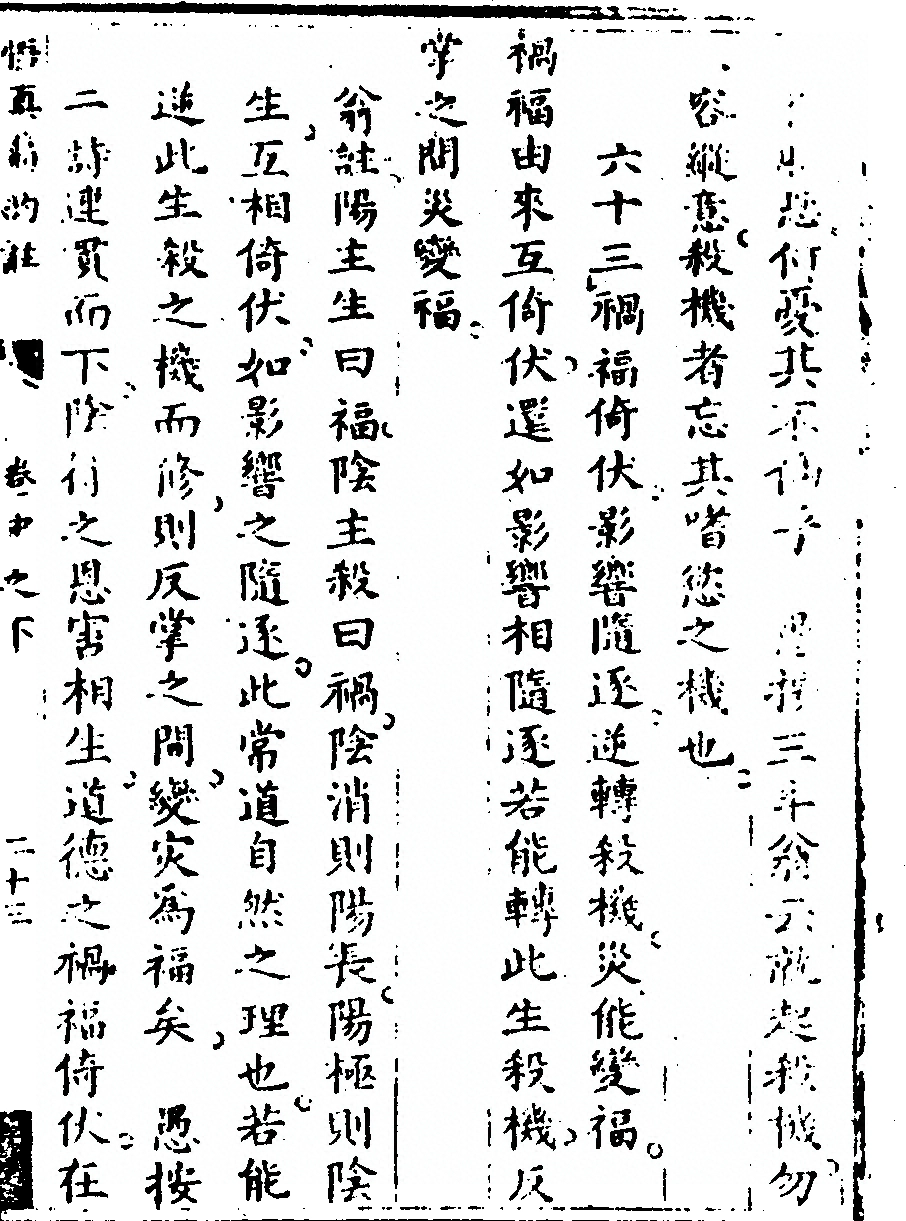 忠何憂其不仙乎　愚按三丰翁云敢起殺機勿
容縱意殺機者忘其嗜慾之機也
六十三禍福倚伏影響隨逐逆轉殺機災能變福
禍福由來互倚伏還如影響相隨逐若能轉此生殺機反
掌之間災變福
翁註陽主生曰福陰主殺曰禍陰消則陽長陽極則陰
生互相倚伏如影響之隨逐此常道自然之理也若能
逆此生殺之機而修則反掌之間變灾爲福矣　愚按
二詩連貫而下陰符之恩害相生道德之禍福倚伏在
悟真篇約註　卷中之下　二十三